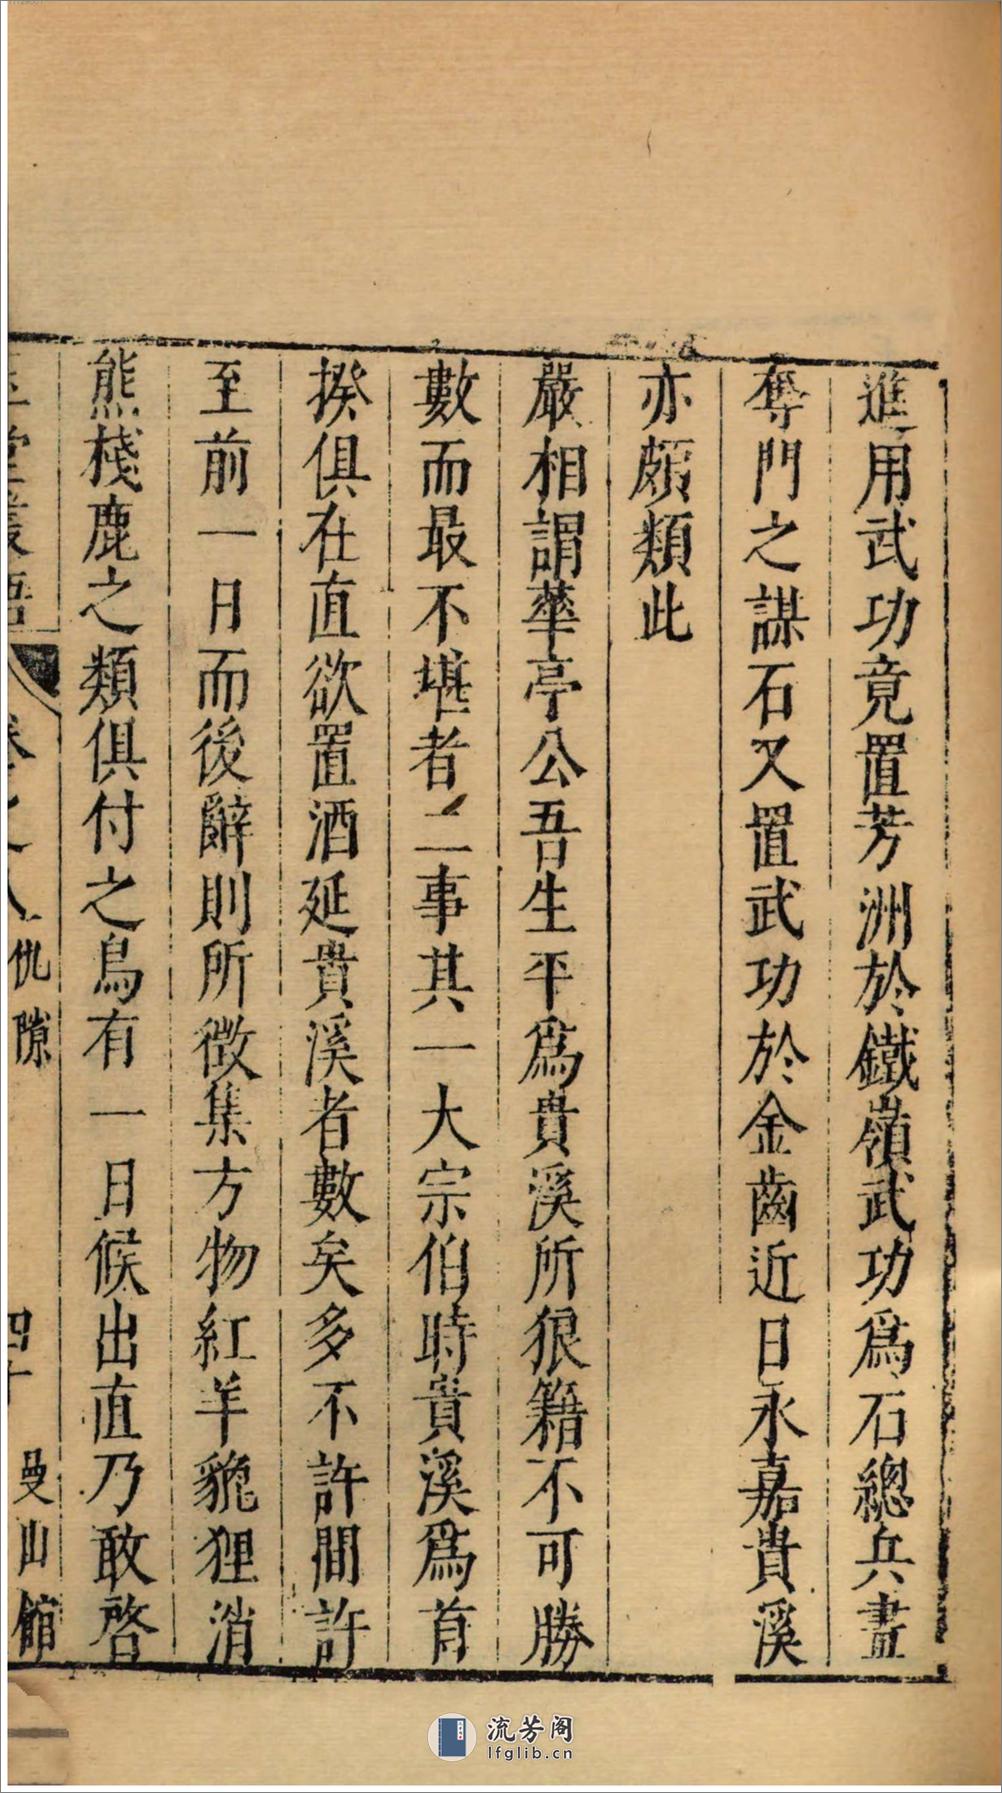 進用武功竟置芳洲於鐵嶺武功爲石總兵畫
奪門之謀石又置武功於金齒近日永嘉貴溪
亦頗類此
嚴相謂華亭公吾生平爲貴溪所狠籍不可勝
數而最不堪者二事其一大宗伯時貴溪爲首
揆俱在直欲置酒延貴溪者數矣多不許間許
至前一日而後辭則所徵集方物紅羊貔狸消
熊棧鹿之類俱付之烏有一日候出直乃敢啓
玉堂叢語 卷之八 仇隙 四十 曼山館
流芳阁
lfglib.cn